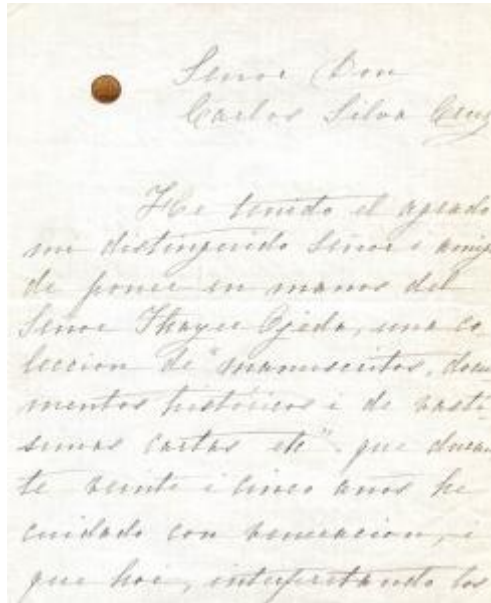 Señor Don
Carlos Silva Cruz
He tenido el agrado
mi distinguido Señor i amigo
de poner en manos del
Señor Thayer Ojeda, una co,
leccion de "manuscritos, docu
mentos históricos i de
cartas etc" que duran
te veinte i cinco años he
cuidado con veneracion, i
que hoi, interpretando los